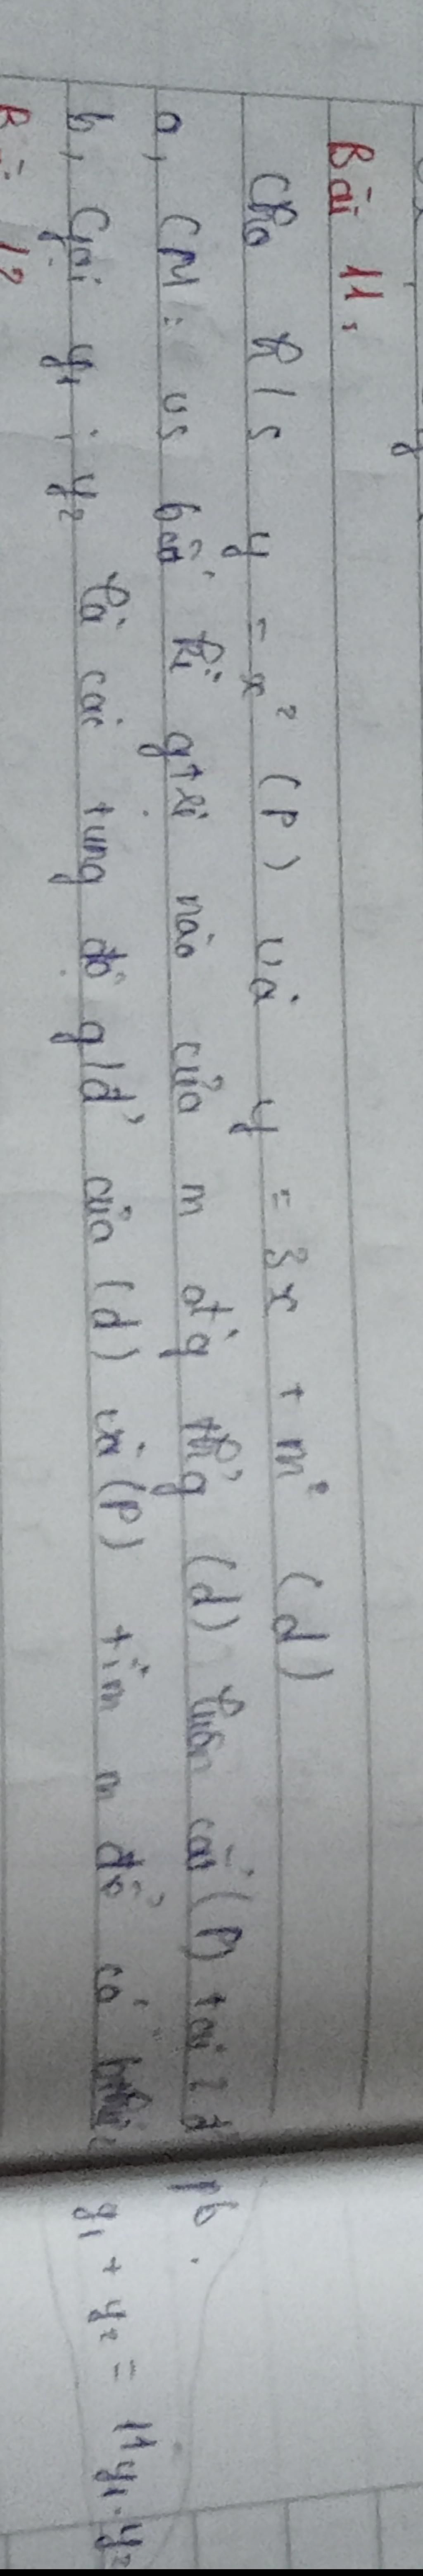 Bài 11,
Cho h/s y = x² (P) và y = 3x + m² (d)
a, CM: vs bất kì gtrị nào của m đ'g th'g (d) luôn cắt (P) tại 2 đ' pb.
b, Gọi y₁ ; y₂ là các tung độ g/đ' của (d) và (P) tìm m để có y₁ + y₂ = 11y₁.y₂